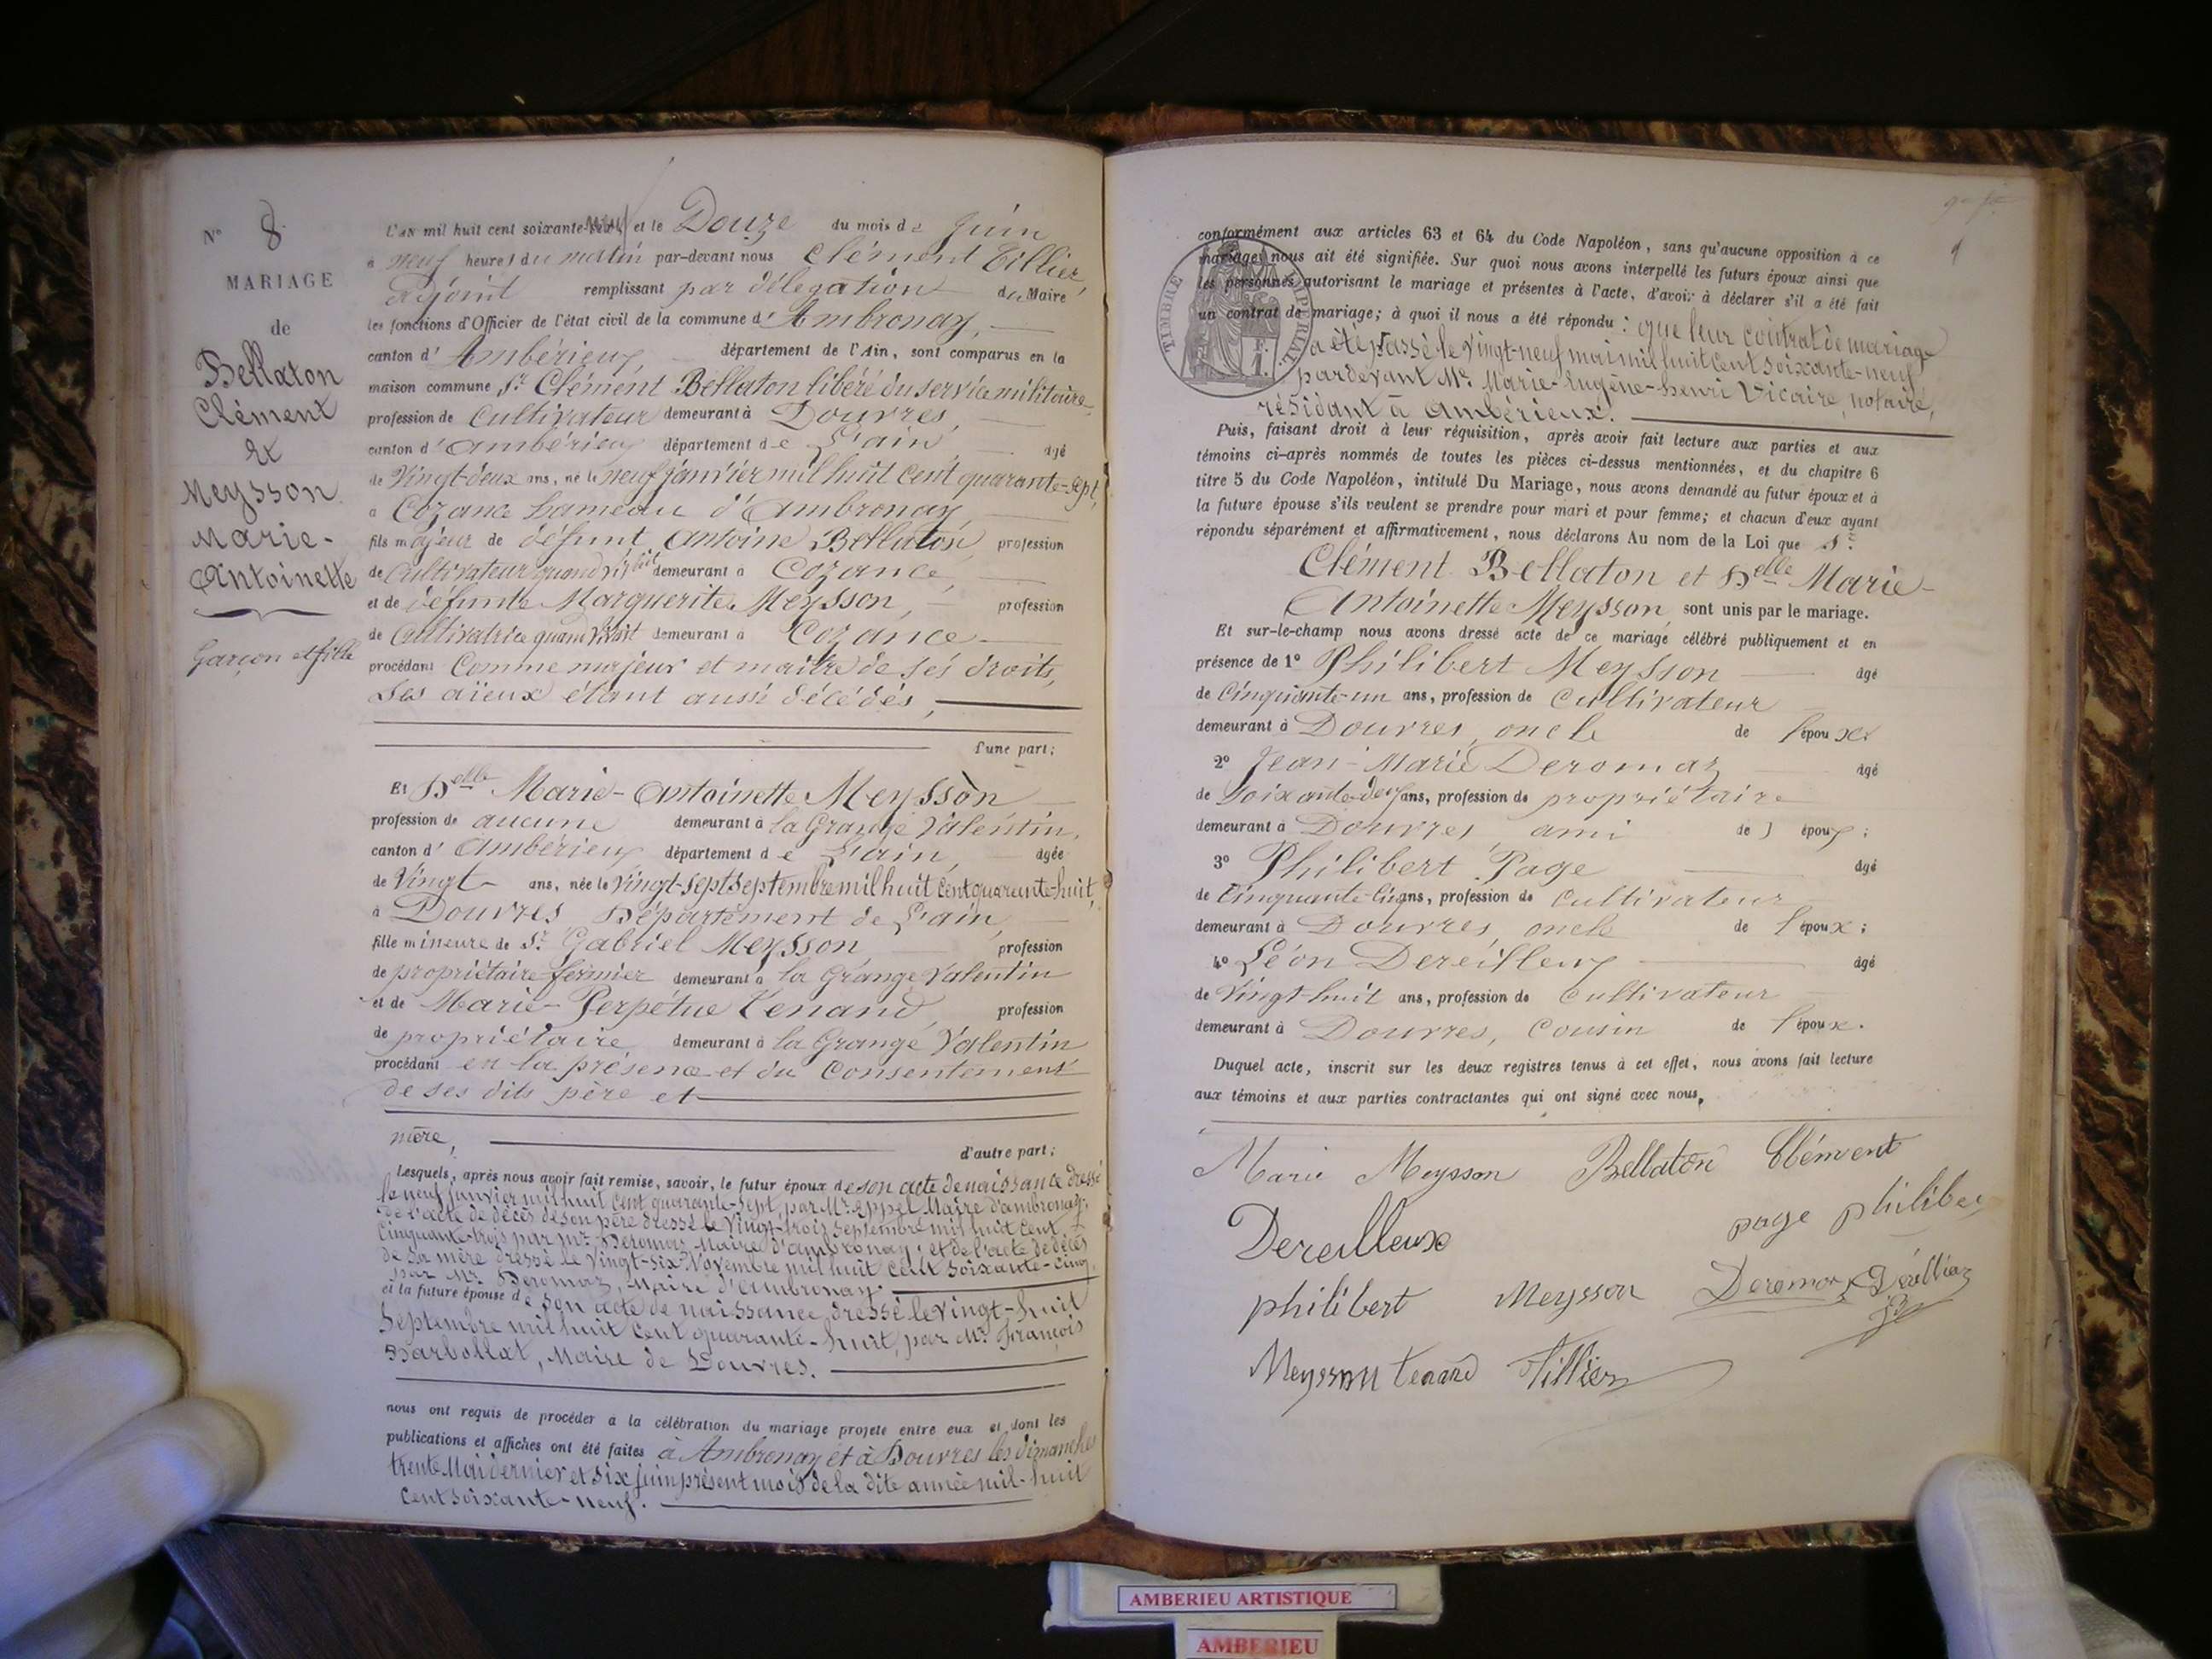 N° 8
MARIAGE
de
Bellaton
Clément
et
Meysson
Marie-
Antoinette
Garçon et fille
L'AN mil huit cent soixante-neuf et le Douze du mois de Juin
à neuf heures du matin par-devant nous Clément Tillier,
Adjoint remplissant par délégation du Maire
les fonctions d'Officier de l'état civil de la commune d'Ambronay,
canton d'Ambérieux, département de l'Ain, sont comparus en la
maison commune Sr Clément Bellaton libéré du service militaire
profession de Cultivateur demeurant à Douvres,
canton d'ambérieux département de L'ain âgé
de Vingt-deux ans, né le neuf janvier mil huit cent quarante-sept,
à Cozance hameau d'Ambronay,
fils majeur de défunt Antoine Bellaton profession
de Cultivateur quand vivait demeurant à Cozance,
et de défunte Marguerite Meysson, profession
de Cultivatrice quand vivait demeurant à Cozance
procédant Comme majeur et maître de ses droits,
Ses aïeux étant aussi décédés,
d'une part;
Et Delle Marie-Antoinette Meysson
profession de aucune demeurant à la Grange Valentin,
canton d'Ambérieux département de L'ain, âgée
de Vingt ans, née le Vingt-sept septembre mil huit cent quarante-huit,
à Douvres Département de L'ain,
fille mineure de Sr Gabriel Meysson profession
de propriétaire-fermier demeurant à la Grange Valentin
et de Marie-Perpétue Tenand, profession
de propriétaire demeurant à la Grange Valentin
procédant en la présence et du Consentement
de ses dits père et
mère,
d'autre part;
Lesquels, après nous avoir fait remise, savoir, le futur époux de son acte de naissance dressé
le neuf janvier mil huit cent quarante-sept, par Mr Eppel Maire d'ambronay;
de l'acte de décès de son père dressé le Vingt-trois septembre mil huit cent
cinquante-trois par Mr Deromaz, Maire d'ambronay; et de l'acte de décès
de sa mère dressé le Vingt-six Novembre mil huit cent soixante-cinq
par Mr Deromaz, Maire d'ambronay.
et la future épouse de son acte de naissance dressé le vingt-huit
Septembre mil huit cent quarante-huit, par Mr François
Barbollat, Maire de Douvres.
nous ont requis de procéder à la célébration du mariage projeté entre eux et dont les
publications et affiches ont été faites à Ambronay et à Douvres les dimanches
trente Mai dernier et six juin présent mois de la dite année mil-huit
cent soixante-neuf.
conformément aux articles 63 et 64 du Code Napoléon, sans qu'aucune opposition à ce
mariage nous ait été signifiée. Sur quoi nous avons interpellé les futurs époux ainsi que
les personnes autorisant le mariage et présentes à l'acte, d'avoir à déclarer s'il a été fait
un contrat de mariage; à quoi il nous a été répondu : que leur contrat de mariage
a été passé le vingt-neuf mai mil huit cent soixante-neuf
pardevant Mr Marie-Eugène-Henri Vicaire, notaire,
résidant à Ambérieux.
TIMBRE IMPERIAL
Puis, faisant droit à leur réquisition, après avoir fait lecture aux parties et aux
témoins ci-après nommés de toutes les pièces ci-dessus mentionnées, et du chapitre 6
titre 5 du Code Napoléon, intitulé Du Mariage, nous avons demandé au futur époux et à
la future épouse s'ils veulent se prendre pour mari et pour femme; et chacun d'eux ayant
répondu séparément et affirmativement, nous déclarons Au nom de la Loi que Sr
Clément Bellaton et Delle Marie-
Antoinette Meysson, sont unis par le mariage.
Et sur-le-champ nous avons dressé acte de ce mariage célébré publiquement et en
présence de 1° Philibert Meysson âgé
de Cinquante-un ans, profession de Cultivateur
demeurant à Douvres, oncle de l'époux.
2° Jean-Marie Deromaz âgé
de Soixante-deux ans, profession de propriétaire
demeurant à Douvres, ami de l'époux;
3° Philibert Page âgé
de Cinquante-cinq ans, profession de Cultivateur
demeurant à Douvres, oncle de l'époux;
4° Léon Dereilleux âgé
de Vingt-huit ans, profession de Cultivateur
demeurant à Douvres, Cousin de l'époux.
Duquel acte, inscrit sur les deux registres tenus à cet effet, nous avons fait lecture
aux témoins et aux parties contractantes qui ont signé avec nous,
Marie Meysson Bellaton Clément
Dereilleux page philibert
philibert Meysson Deromaz
Meysson tenand Tillier
AMBERIEU ARTISTIQUE
AMBERIEU